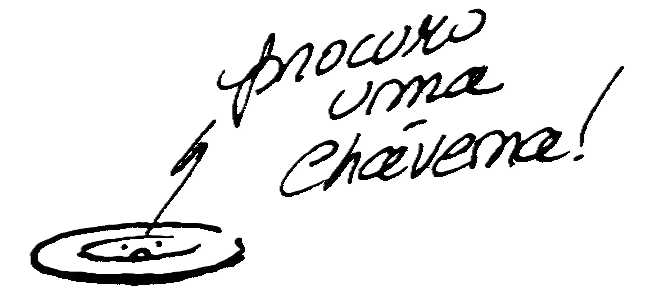 procuro
uma
Chávena!